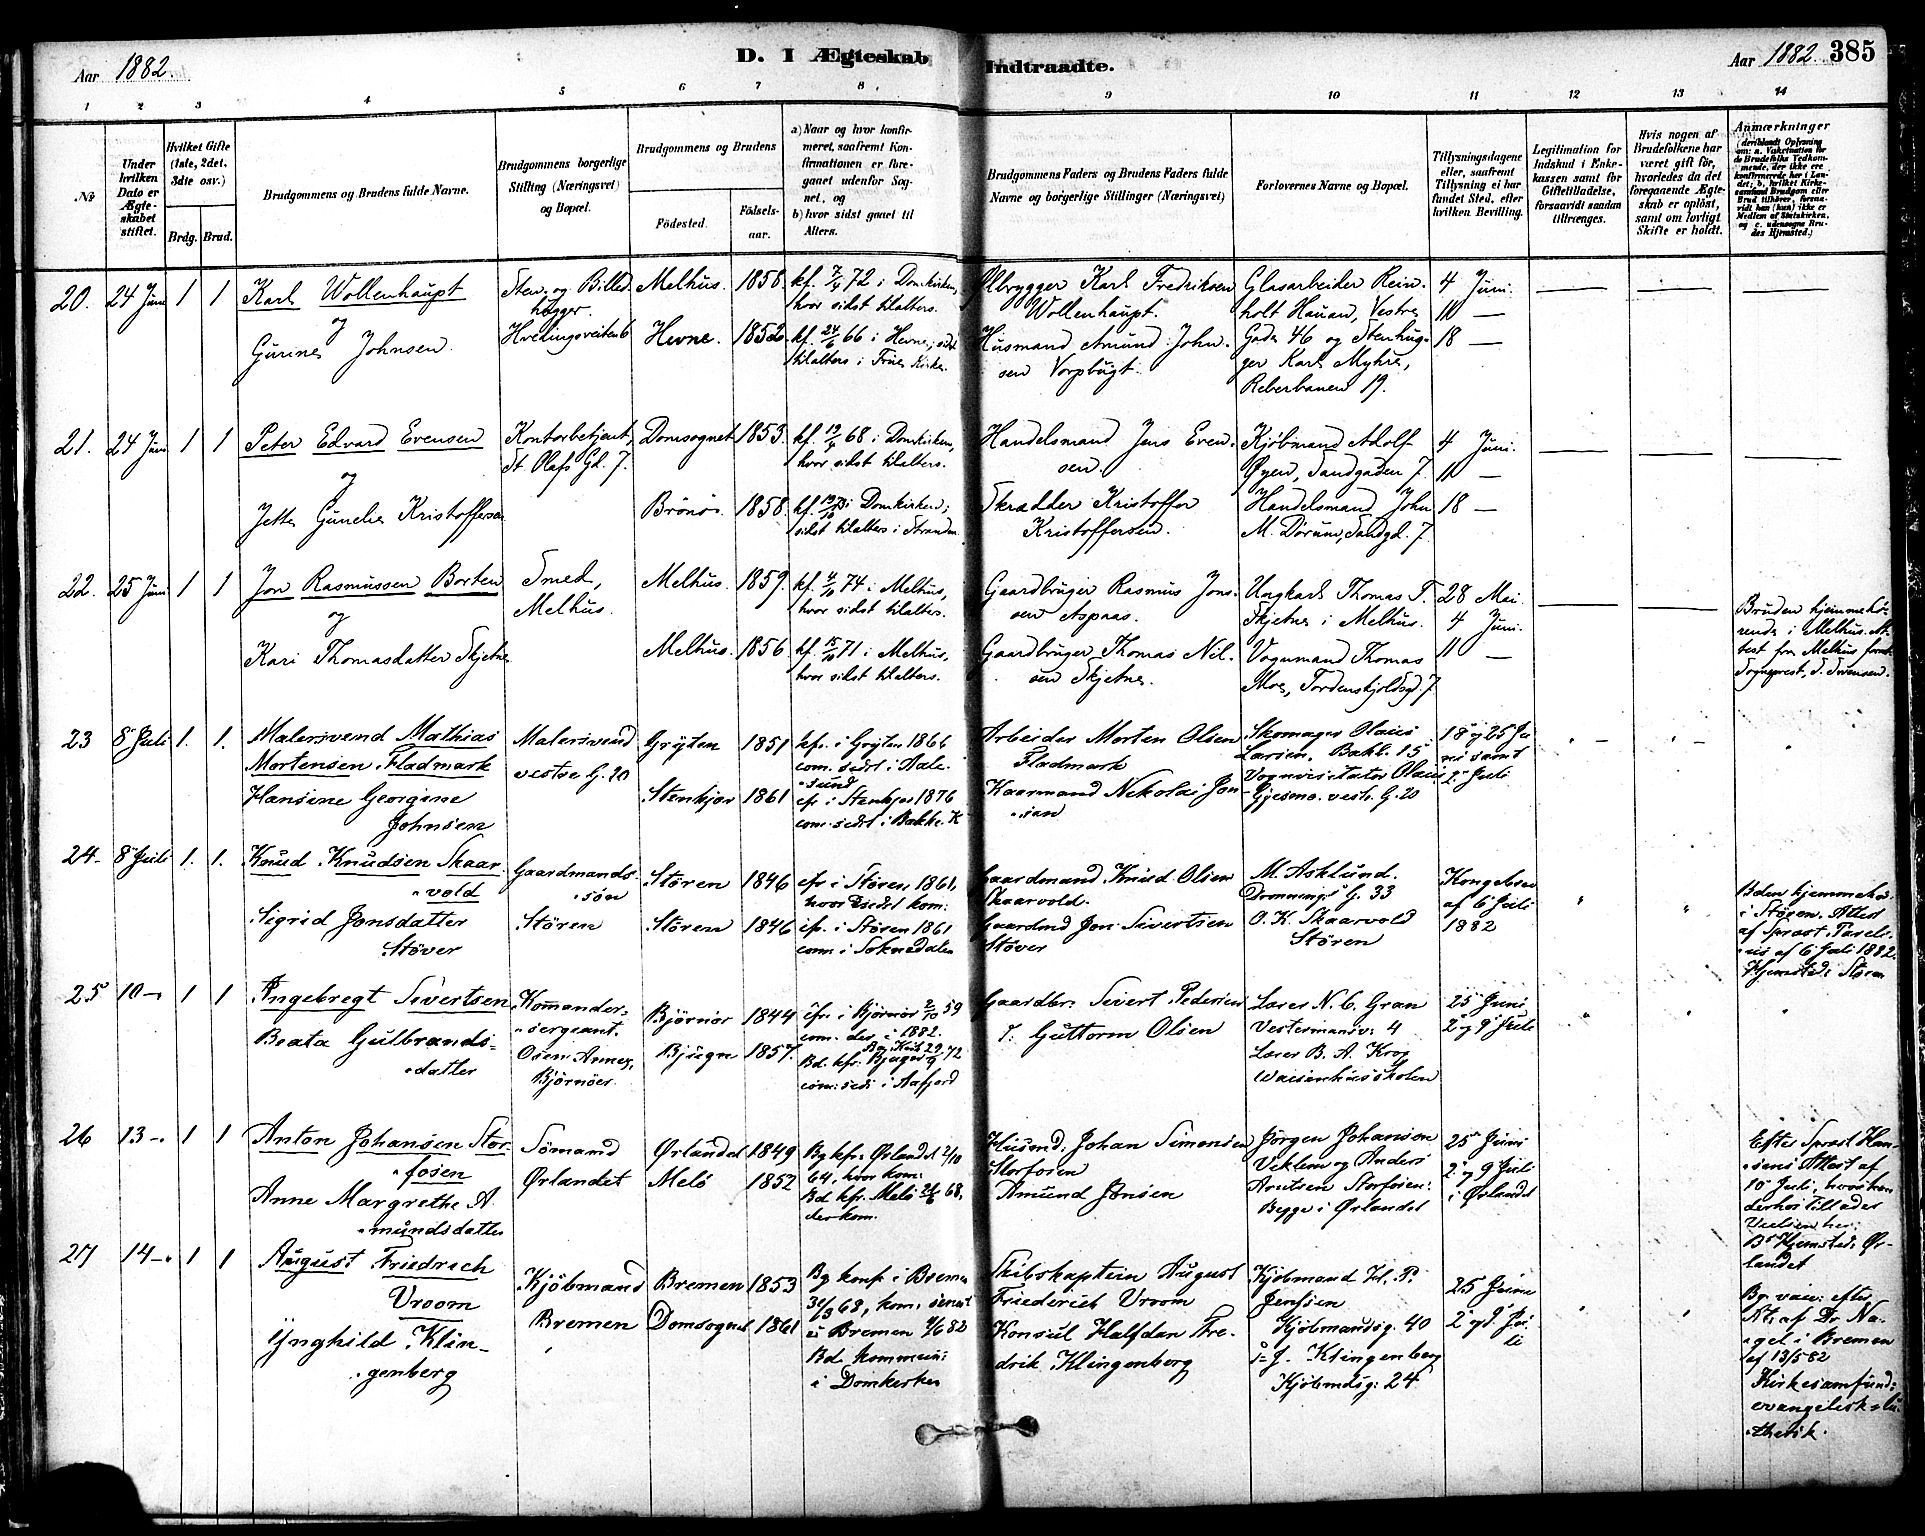 Aar 1882.
D. I Ægteskab Indtraadte.
Aar 1882. 385
1 2 3 4 5 6 7 8 9 10 11 12 13 14
No
Under hvilken Dato er Ægteskabet stiftet.
Hvilket Gifte (1ste, 2det, 3die osv.)
Brdg. Brud.
Brudgommens og Brudens fulde Navne.
Brudgommens borgerlige Stilling (Næringsvei) og Bopæl.
Brudgommens og Brudens
Fødested.
Fødselsaar.
a) Naar og hvor konfirmeret, saafremt Konfirmationen er foregaaet udenfor Sognet, og
b) hvor sidst gaaet til Alters.
Brudgommens Faders og Brudens Faders fulde Navne og borgerlige Stillinger (Næringsvei)
Forlovernes Navne og Bopæl.
Tillysningsdagene eller, saafremt Tillysning ei har fundet Sted, efter hvilken Bevilling.
Legitimation for Indskud i Enkekassen samt for Giftetilladelse, forsaavidt saadan tiltrænges.
Hvis nogen af Brudefolkene har været gift før, hvorledes da det foregaaende Ægteskab er opløst, samt om lovligt Skifte er holdt.
Anmærkninger
(deriblandt Oplysning om: a. Vaksination for de Brudefolks Vedkommende, der ikke ere konfirmerede her i Landet; b. hvilket Kirkesamfund Brudgom eller Brud tilhører, forsaavidt han (hun) ikke er Medlem af Statskirken, og c. udensogns Brudes Hjemsted.)
20. 24 Juni 1 1
Karl Wollenhaupt
og
Gurine Johnsen.
Sten- og Billedhugger.
Hvedingsveiten 6
Melhus. 1858.
Hevne. 1852.
kf. 7/4 72 i Domkirken,
hvor sidst tilalters.
kf. 24/6 66 i Hevne; sidst
tilalters i Frue Kirke.
Ølbrygger Karl Fredriksen
Wollenhaupt.
Husmand Amund Johnsen
Vorpbugt.
Glasarbeider Reinholt
Hauan, Vestre
Gade 46 og Stenhugger
Karl Myhre,
Reberbanen 19.
4 Juni.
11 —
18 —
21. 24 Juni 1 1
Peter Edvard Evensen
og
Jette Gunelie Kristoffersen
Kontorbetjent,
St. Olafs Gd. 7.
Domsognet 1853.
Brönö. 1858.
kf. 19/4 68 i Domkirken,
hvor sidst tilalters.
kf. 19/10 73 i Domkirken;
sidst tilalters i Stranden.
Handelsmand Jens Evensen.
Skrædder Kristoffer
Kristoffersen.
Kjöbmand Adolf
Öyen, Sandgaden 7.
Handelsmand John
M. Dörum, Sandgd. 7.
4 Juni.
11 —
18 —
22. 25 Juni 1 1
Jon Rasmussen Borten
og
Kari Thomasdatter Skjetne
Smed,
Melhus.
Melhus. 1859.
Melhus. 1856.
kf. 4/10 74 i Melhus,
hvor sidst tilalters.
kf. 15/10 71 i Melhus,
hvor sidst tilalters.
Gaardbruger Rasmus Jonsen
Aspaas.
Gaardbruger Thomas Nilsen
Skjetne.
Ungkarl Thomas T.
Skjetne i Melhus.
Vognmand Thomas
Moe, Tordenskjoldsgd. 7
28 Mai.
4 Juni.
11 —
Bruden hjemmehörende
i Melhus. Attest
fra Melhus
Sogneprest, S. Svensen.
23 8 Juli 1. 1.
Malersvend Mathias
Mortensen Fladmark
Hansine Georgine
Johnsen
Malersvend
vestre G. 20
Gryten 1851
Stenkjær 1861
kfr. i Gryten 1866
com. sidst i Aalesund
cfr. i Stenkjær 1876
com. sidst i Bakke K
Arbeider Morten Olsen
Fladmark
Kaarmand Nikolai Jonsian
Skomager Olaus
Larsen, Bakl. 15
Vognvisitator Olaus
Gjesmo. vestr. G. 20
18 og 25 Juni
samt
2 Juli
24. 8 Juli 1. 1.
Knud Knudsen Skaarvold
Sigrid Jonsdatter
Støver
Gaardmandssön
Stören
Stören 1846
Stören 1846
cfr i Stören 1861,
hvor sidst kom.
cfr. i Stören 1861
com. i Soknedalen
Gaardmand Knud Olsen
Skaarvold.
Gaardmd Jon Sivertsen
Støver
M. Asklund.
Dronnings G. 33
O. K. Skaarvold
Stören
Kongebrev
af 6 Juli
1882
i Stören. Attest
af Sprost
af 6 Juli 1882.
Hjemsted: Stören
25 10 — 1 1
Ingebregt Sivertsen
Beata Gulbrandsdatter
Kommandersergeant.
Osen Annex,
Björnöer.
Björnör 1844
Bjugn 1857.
cfr. i Björnör 2/10 59
com. der i 1882.
Bd. kfr. Bjugn 29/9 72
com: sidst i Aafjord
Gaardbr. Sivert Pedersen
T. Guttorm Olsen
Lærer N. C. Gran
Vestermansv: 4
Lærer B. A. Krog
Waisenhusskolen
25 Juni
2 og 9 Juli
26 13 — 1 1
Anton Johansen Storfosen
Anne Margrethe Amundsdatter
Sömand
Ørlandet
Ørlandet 1849
Melö 1852
Bg kfr. Ørlandet 2/10
64, hvor kom:
Bd kfr. Melö 21/6 68,
der kom.
Husmd. Johan Simonsen
Storfosen
Amund Jonsen
Jörgen Johansen
Veklem og Anders
Arntsen Storfosen:
Begge i Ørlandet
25 Juni
2 og 9 Juli
i Ørlandet
Efter Sprost Hansens
Attest af
10 Juli, hvor han
derhos tillader
Vielsen her:
Bs Hjemsted: Ørlandet
27 14 — 1 1
August Friedrich
Vroom
Ynghild Klingenberg
Kjöbmand
Bremen
Bremen 1853
Domsognet 1861
Bg konf. i Bremen
31/3 68, kom. senest
i Bremen 4/6 82
Bd. kommun:
i Domkirken
Skibskaptein August
Friederich Vroom
Konsul Halfdan Fredrik
Klingenberg
Kjöbmand H. P.
Jenssen
Kjöbmandsg. 40
J. Klingenberg
Kjöbmdsg: 24
25 Juni
2 og 9 Juli
Bg. vac: efter
Att: af Dr Nagel
i Bremen
af 13/5 82
Kirkesamfund:
evangelisk-luthersk.